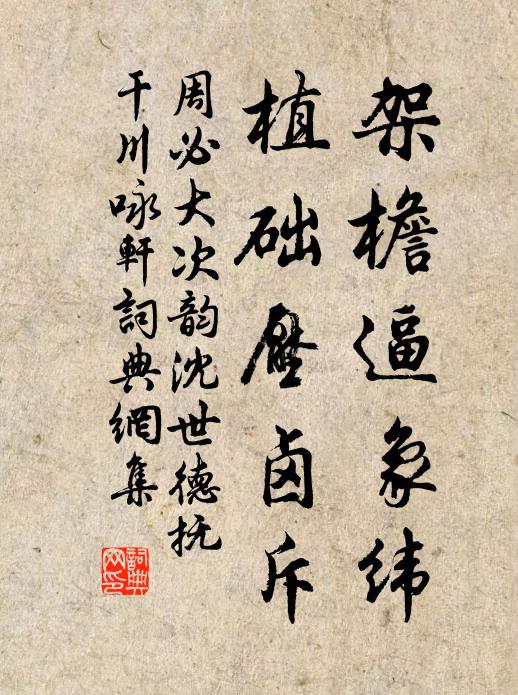 架檐逼象纬
植础压卤斥
周必大次韵沈世德抚
干川咏軒詞典網集
詞典
网印